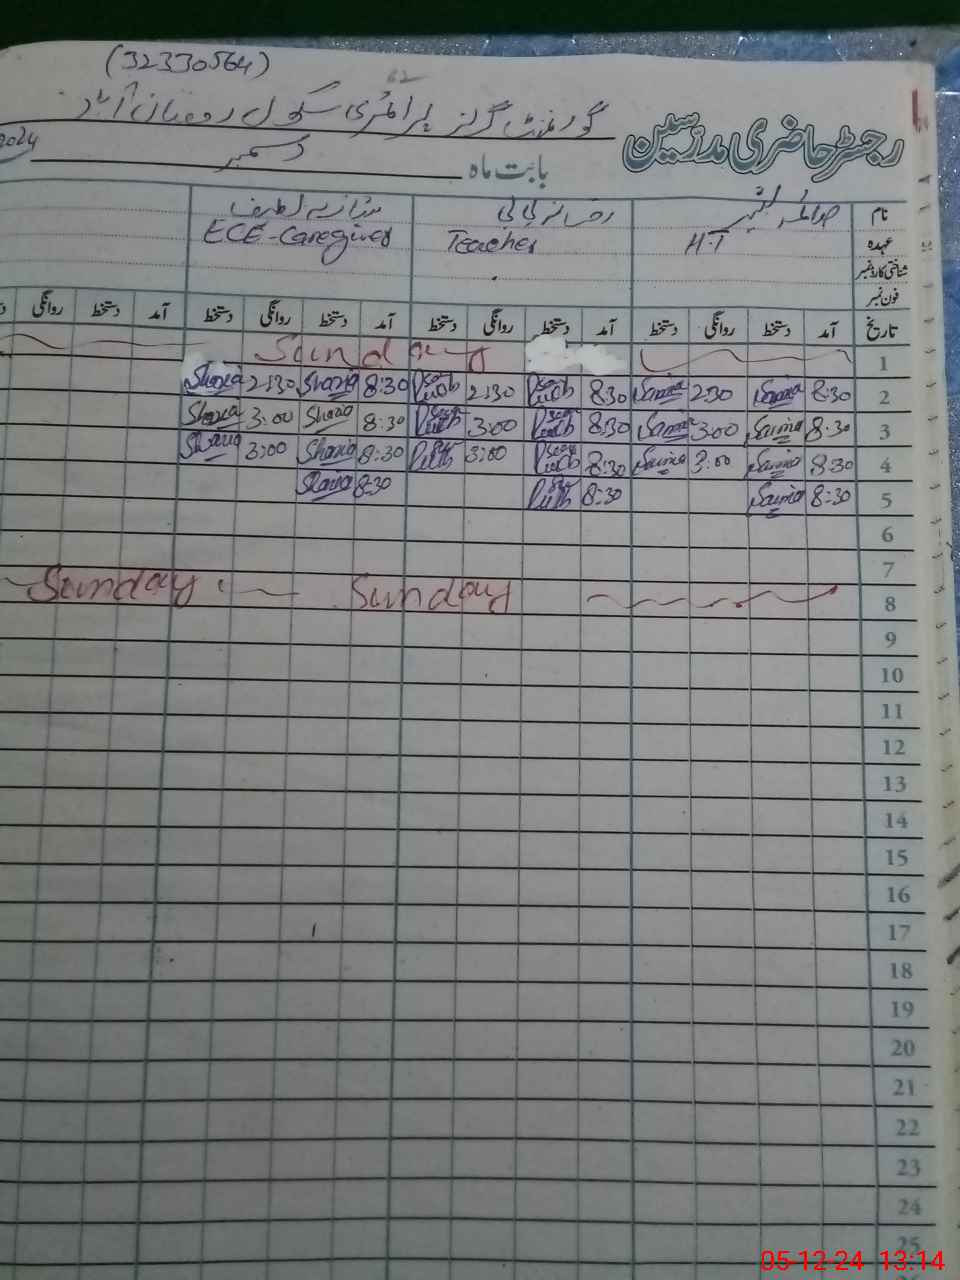 (32330564)
گورنمنٹ گرلز پرائمری سکول رمضان آباد
رجسٹر حاضری مدرسین
بابت ماہ دسمبر 2024
نام صائمہ رخسانہ بی بی شازیہ لطیف
عہدہ H.T Teacher ECE-Caregiver
شناختی کارڈ نمبر
فون نمبر
تاریخ آمد دستخط روانگی دستخط آمد دستخط روانگی دستخط آمد دستخط روانگی دستخط آمد دستخط روانگی
1 Sunday
2 8:30 Saima 2:30 Saima 8:30 2:30 8:30 Shazia 2:30 Shazia
3 8:30 Saima 3:00 Saima 8:30 3:00 8:30 Shazia 3:00 Shazia
4 8:30 Saima 3:00 Saima 8:30 3:00 8:30 Shazia 3:00 Shazia
5 8:30 Saima 8:30 8:30 Shazia
6
7
8 Sunday Sunday
9
10
11
12
13
14
15
16
17
18
19
20
21
22
23
24
25
05-12-24 13:14